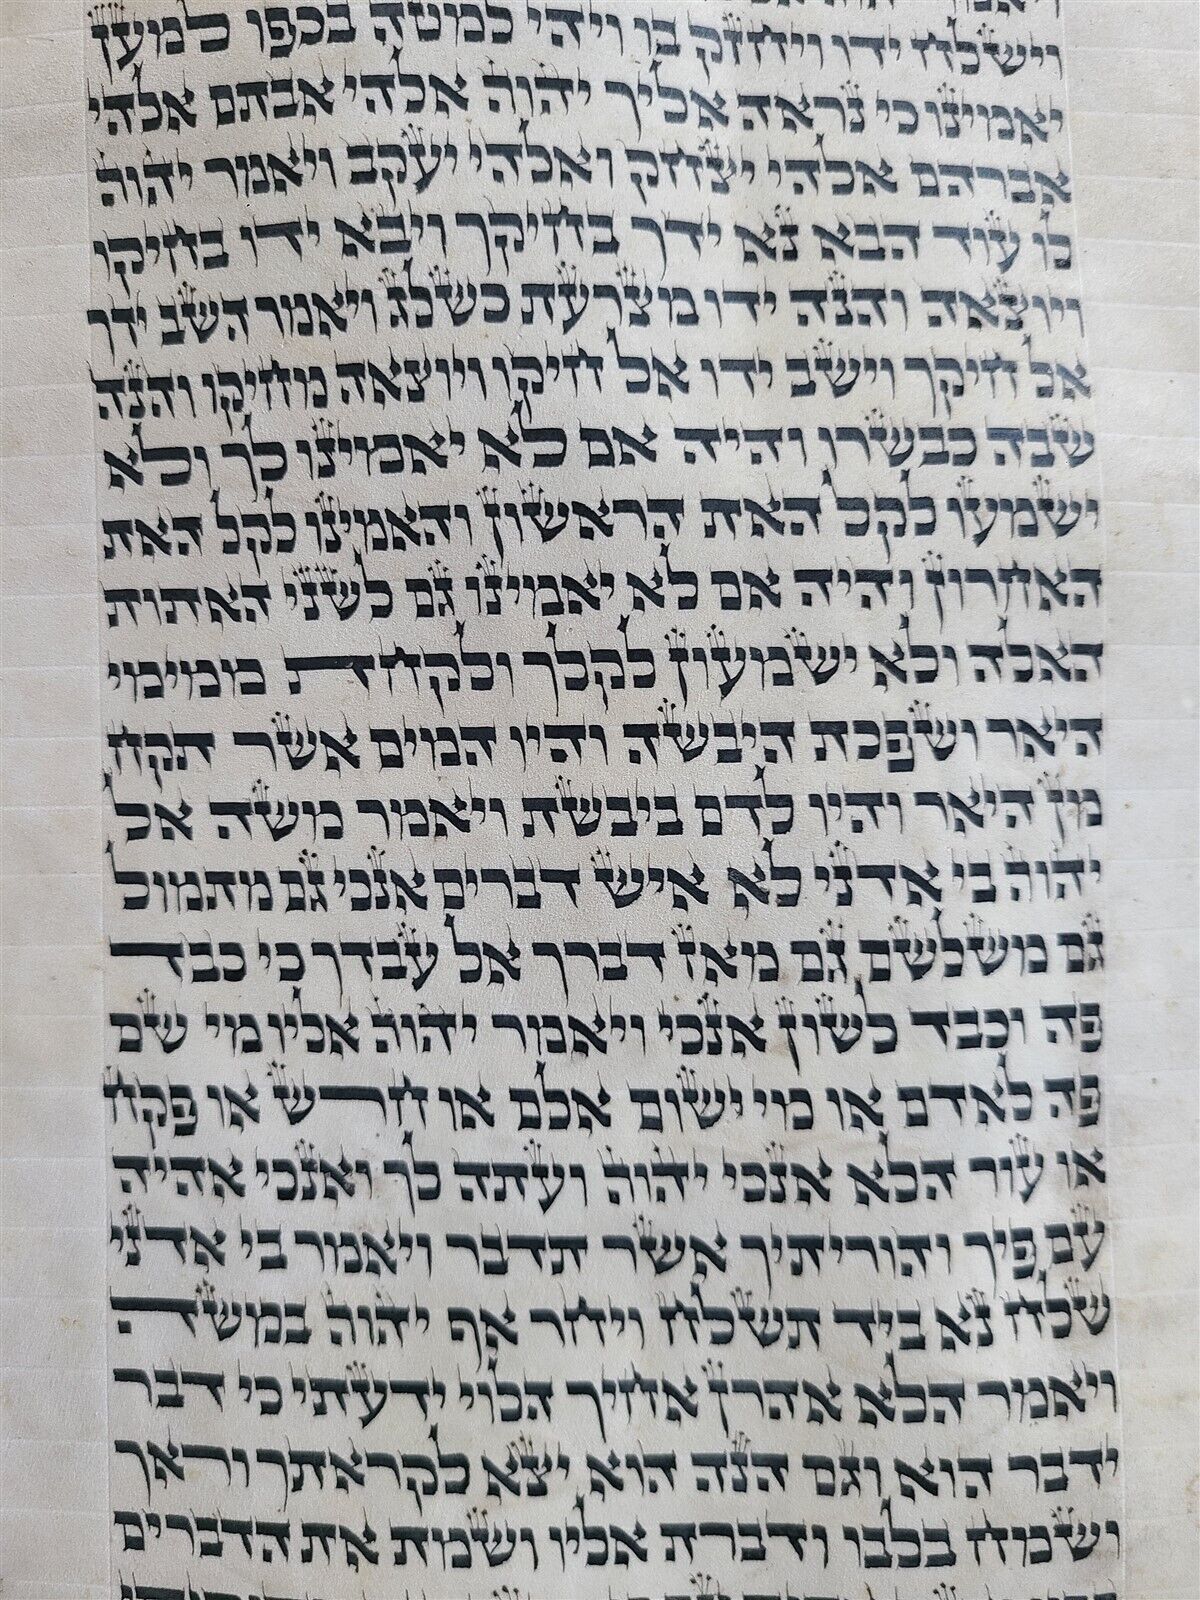 וישלח ידו ויחזק בו ויהי למטה בכפו למען
יאמינו כי נראה אליך יהוה אלהי אבתם אלהי
אברהם אלהי יצחק ואלהי יעקב ויאמר יהוה
לו עוד הבא נא ידך בחיקך ויבא ידו בחיקו
ויוצאה והנה ידו מצרעת כשלג ויאמר השב ידך
אל חיקך וישב ידו אל חיקו ויוצאה מחיקו והנה
שבה כבשרו והיה אם לא יאמינו לך ולא
ישמעו לקל האת הראשון והאמינו לקל האת
האחרון והיה אם לא יאמינו גם לשני האתות
האלה ולא ישמעון לקלך ולקחת ממימי
היאר ושפכת היבשה והיו המים אשר תקח
מן היאר והיו לדם ביבשת ויאמר משה אל
יהוה בי אדני לא איש דברים אנכי גם מתמול
גם משלשם גם מאז דברך אל עבדך כי כבד
פה וכבד לשון אנכי ויאמר יהוה אליו מי שם
פה לאדם או מי ישום אלם או חרש או פקח
או עור הלא אנכי יהוה ועתה לך ואנכי אהיה
עם פיך והוריתיך אשר תדבר ויאמר בי אדני
שלח נא ביד תשלח ויחר אף יהוה במשה
ויאמר הלא אהרן אחיך הלוי ידעתי כי דבר
ידבר הוא וגם הנה הוא יצא לקראתך וראך
ושמח בלבו ודברת אליו ושמת את הדברים